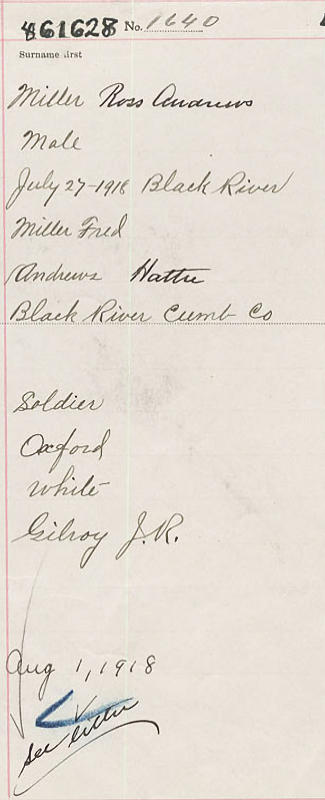 861628 No. 1640
Surname first
Miller Ross Andrews
Male
July 27-1918 Black River
Miller Fred
Andrews Hattie
Black River Cumb Co
Soldier
Oxford
White
Gilroy J.R.
Aug 1, 1918
See letter